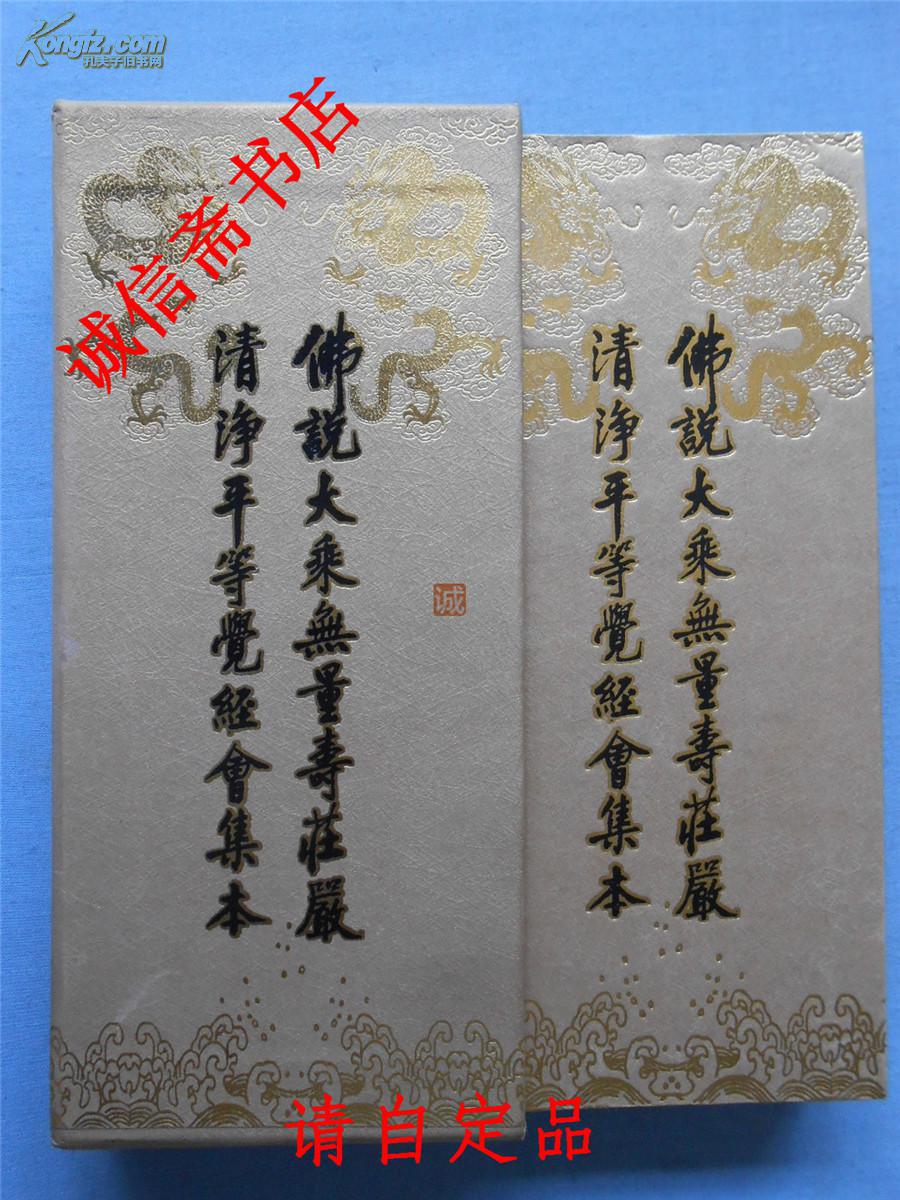 Kongfz.com
孔夫子旧书网
诚信斋书店
佛說大乘無量壽莊嚴
清淨平等覺經會集本
诚
佛說大乘無量壽莊嚴
清淨平等覺經會集本
请自定品